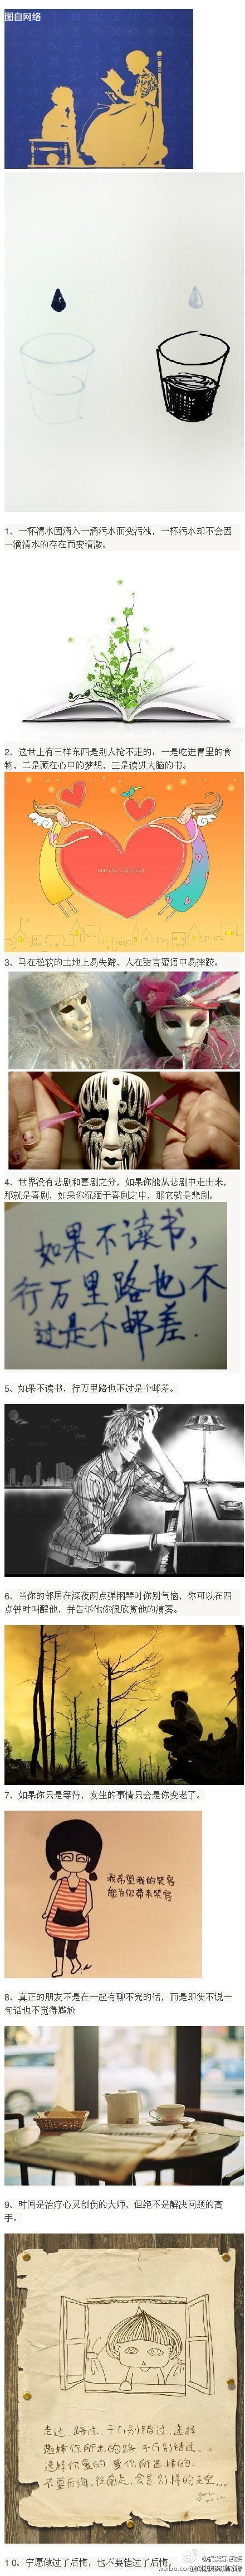 图自网络
1、一杯清水因滴入一滴污水而变污浊，一杯污水却不会因
一滴清水的存在而变清澈。
2、这世上有三样东西是别人抢不走的，一是吃进胃里的食
物，二是藏在心中的梦想，三是读进大脑的书。
3、马在松软的土地上易失蹄，人在甜言蜜语中易摔跤。
4、世界没有悲剧和喜剧之分，如果你能从悲剧中走出来，
那就是喜剧，如果你沉缅于喜剧之中，那它就是悲剧。
如果不读书，
行万里路也不
过是个邮差.
5、如果不读书，行万里路也不过是个邮差。
6、当你的邻居在深夜两点弹钢琴时你别气恼，你可以在四
点钟时叫醒他，并告诉他你很欣赏他的演奏。
7、如果你只是等待，发生的事情只会是你变老了。
我希望我的笑容
能为你带来笑容
8、真正的朋友不是在一起有聊不完的话，而是即使不说一
句话也不觉得尴尬
9、时间是治疗心灵创伤的大师，但绝不是解决问题的高
手。
走过 路过 千万别错过. 选择
选择你所走的路 千万别错过.
选择你爱的 爱你所选择的.
不要后悔.
会是别样的天空...
10、宁愿做过了后悔，也不要错过了后悔。